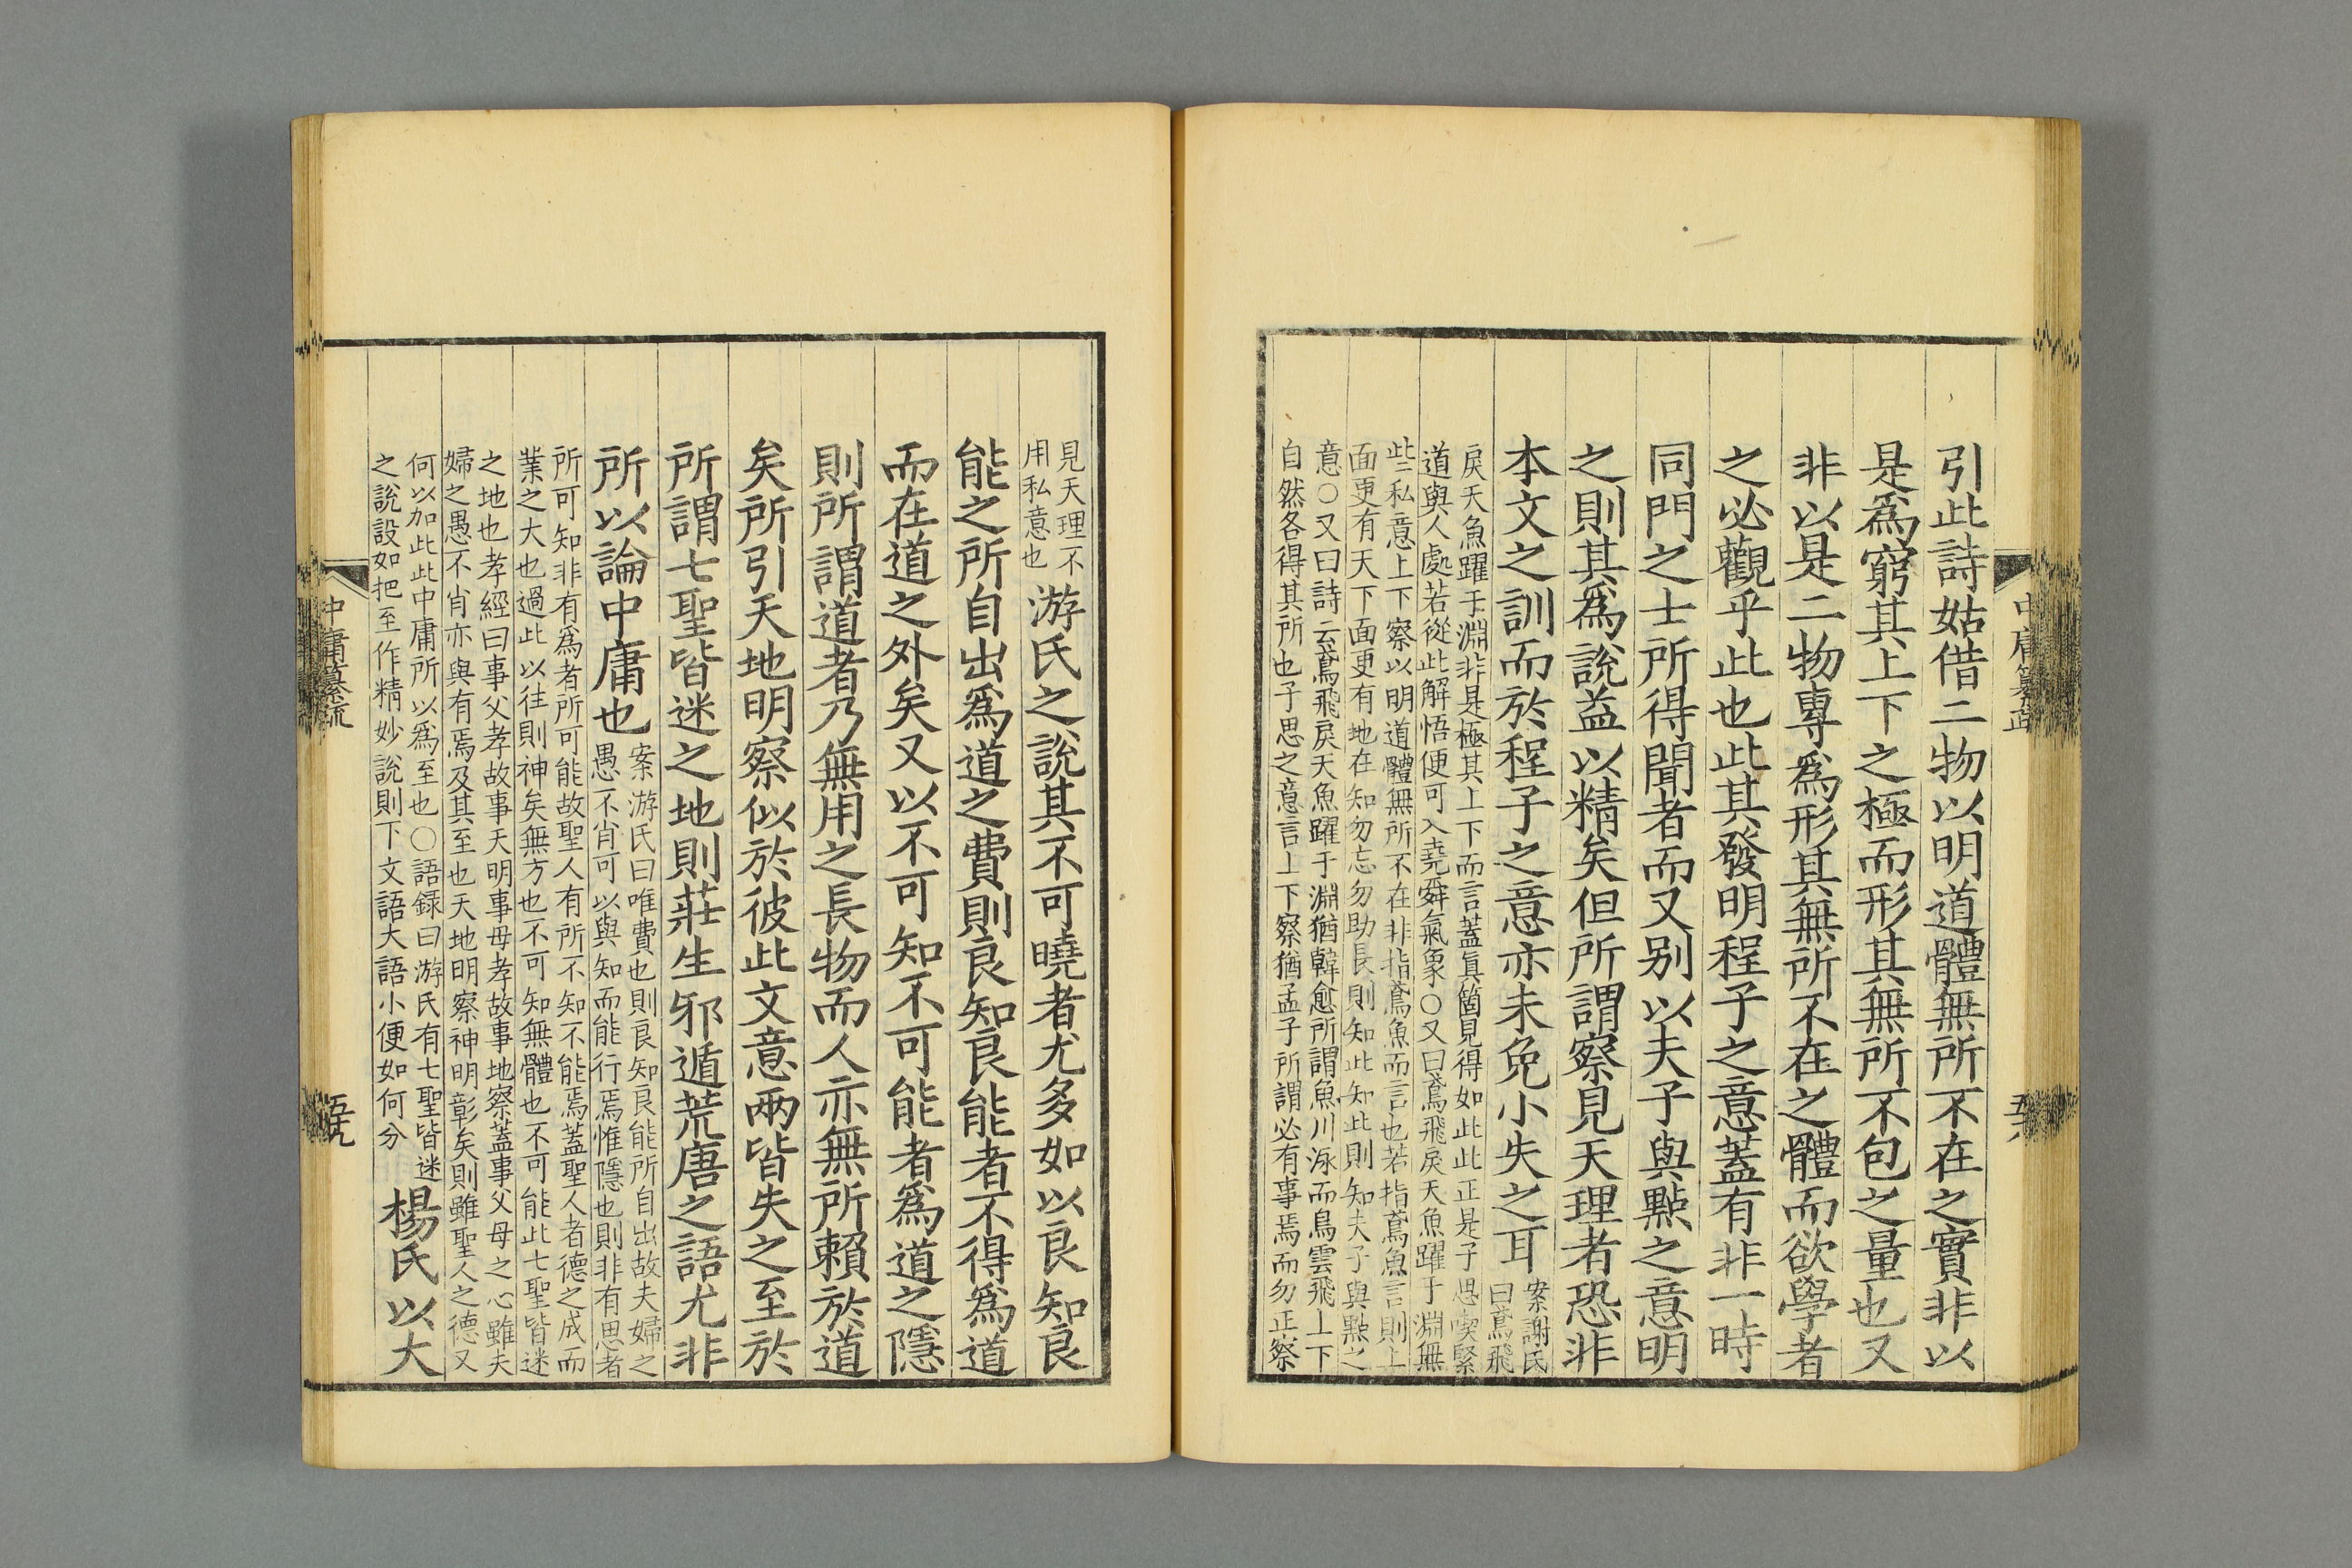 引此詩姑借二物以明道體無所不在之實非以
是爲窮其上下之極而形其無所不包之量也又
非以是二物專爲形其無所不在之體而欲學者
之必觀乎此也此其發明程子之意蓋有非一時
同門之士所得聞者而又别以夫子與㸃之意明
之則其爲說益以精矣但所謂察見天理者恐非
本文之訓而於程子之意亦未免小失之耳
案謝氏
曰鳶飛
戾天魚躍于淵非是極其上下而言蓋眞箇見得如此此正是子思喫緊
道與人處若從此解悟便可入堯舜氣象○又曰鳶飛戾天魚躍于淵無
些私意上下察以明道體無所不在非指鳶魚而言也若指鳶魚言則上
面更有天下面更有地在知勿忘勿助長則知此知此則知夫子與㸃之
意○又曰詩云鳶飛戾天魚躍于淵猶韓愈所謂魚川泳而鳥雲飛上下
自然各得其所也子思之意言上下察猶孟子所謂必有事焉而勿正察
中庸纂疏
見天理不
用私意也
游氏之說其不可曉者尤多如以良知良
能之所自出爲道之費則良知良能者不得爲道
而在道之外矣又以不可知不可能者爲道之隱
則所謂道者乃無用之長物而人亦無所賴於道
矣所引天地明察似於彼此文意兩皆失之至於
所謂七聖皆迷之地則莊生邪遁荒唐之語尤非
所以論中庸也
案游氏曰唯費也則良知良能所自出故夫婦之
愚不肖可以與知而能行焉惟隱也則非有思者
所可知非有爲者所可能故聖人有所不知不能焉蓋聖人者德之成而
業之大也過此以往則神矣無方也不可知無體也不可能此七聖皆迷
之地也孝經曰事父孝故事天明事母孝故事地察蓋事父母之心雖夫
婦之愚不肖亦與有焉及其至也天地明察神明彰矣則雖聖人之德又
何以加此此中庸所以爲至也○語録曰游氏有七聖皆迷
之說設如把至作精妙說則下文語大語小便如何分
楊氏以大
中庸纂疏
五十九